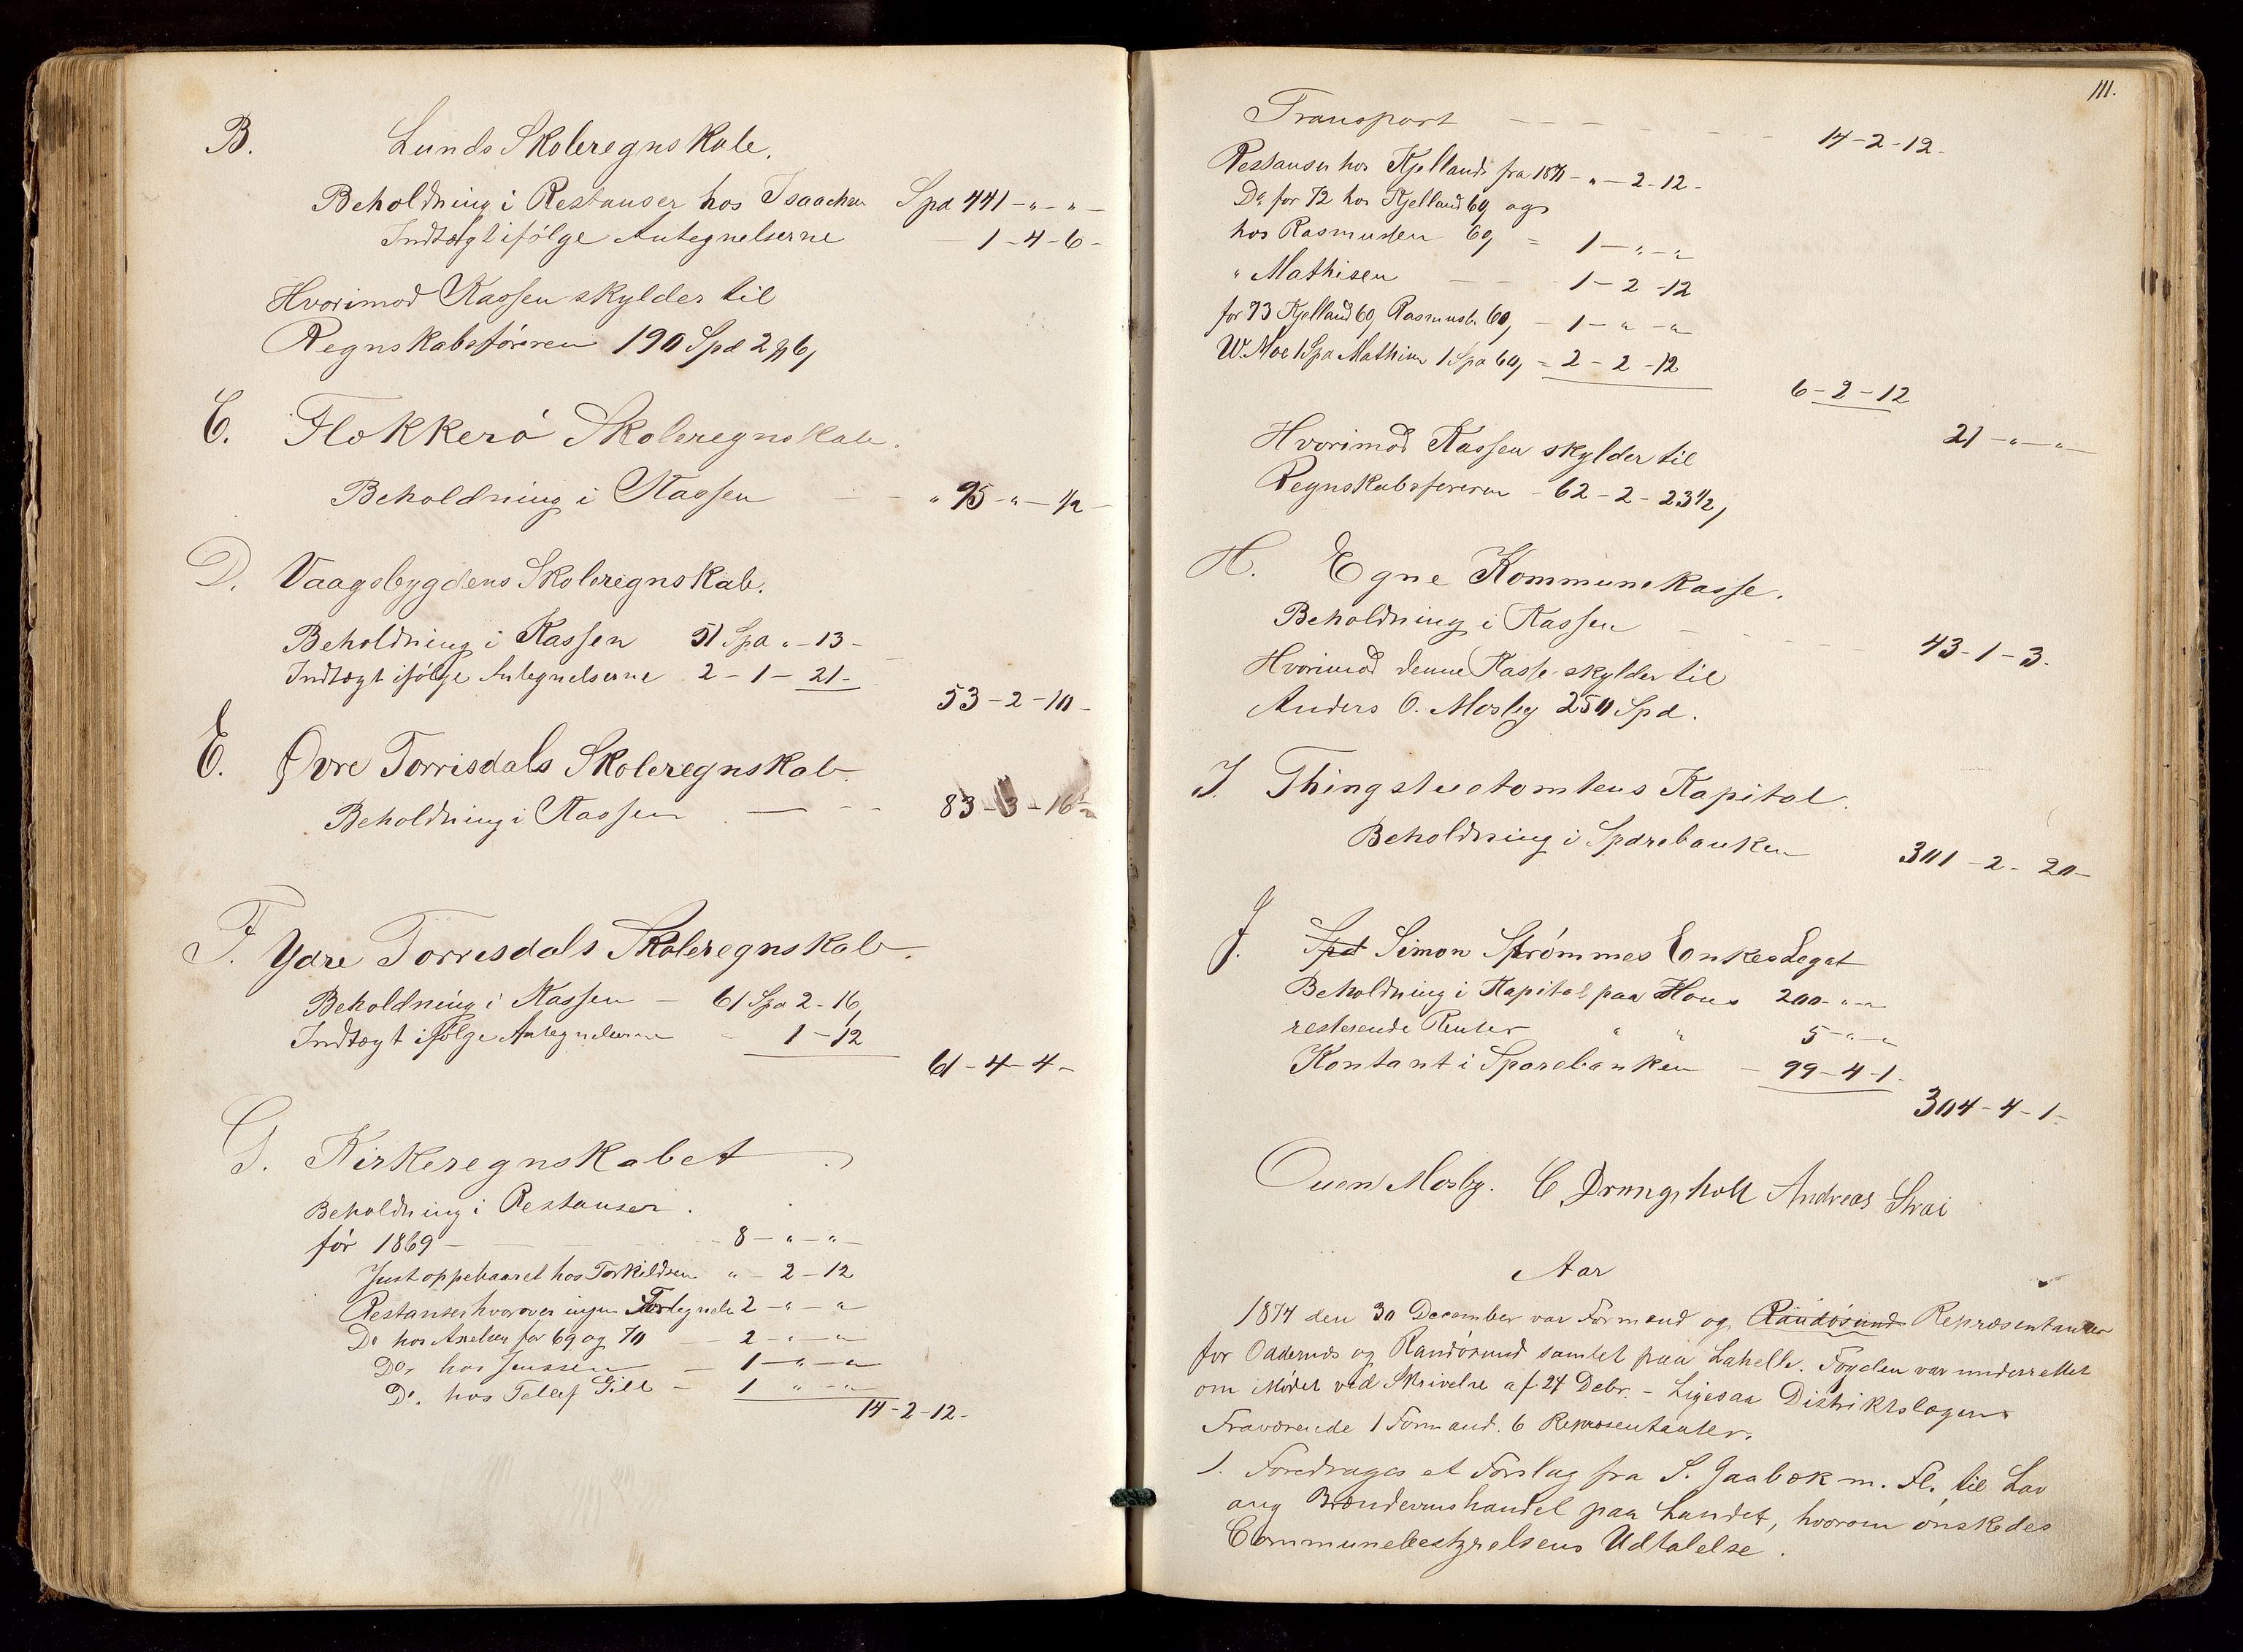 B. Lunds Skoleregnskab.
Beholdning i Restanser hos Isaachsen Spd 441 - " - " -
Indtægt ifølge Antegnelserne - 1 - 4 - 6 -
Hvorimod Kassen skylder til
Regnskabsføreren 190 Spd 2 ₰ 6,
C. Flekkerø Skoleregnskab.
Beholdning i Kassen - - " 95 - " - 1/2 -
D. Vaagsbygdens Skoleregnskab.
Beholdning i Kassen 51 Spd " - 13 -
Indtægt ifølge Antegnelserne 2 - 1 - 21 -
53 - 2 - 10 -
E. Øvre Torrisdals Skoleregnskab.
Beholdning i Kassen - - - 83 - 3 - 16 -
F. Ydre Torrisdals Skoleregnskab.
Beholdning i Kassen - 61 Spd 2 - 16,
Indtægt ifølge Antegnelserne - 1 - 12
61 - 4 - 4 -
G. Kirkeregnskabet.
Beholdning i Restanser.
før 1869 - - 8 - " - " -
Just oppebaaret hos Torkildsen " - 2 - 12
Restanser hvorover ingen Fortegnelse 2 - " - "
Do hos Axelsen for 69 og 70 - 2 - " - "
Do, hos Jenssen - 1 - " - "
Do. hos Tellef Gill - 1 " - "
14 - 2 - 12 -
111.
Transport - - - - - - 14 - 2 - 12 -
Restanser hos Kjelland fra 1871 - " - 2 - 12 -
Do for 72 hos Kjelland 60, og
hos Rasmussen 60, = 1 - " - "
" Mathisen - - 1 - 2 - 12
for 73 Kjelland 60, Rasmuss. 60, - 1 - " - "
W. Moe 1 Spd Mathisen 1 Spd 60, = 2 - 2 - 12
6 - 2 - 12
21 - " - " -
Hvorimod Kassen skylder til
Regnskabsføreren - 62 - 2 - 23 1/2,
H. Egne Kommunekasse.
Beholdning i Kassen - - - - - 43 - 1 - 3.
Hvorimod denne Kasse skylder til
Anders O. Mosby 250 Spd.
I. Thingstuetomtens Kapital.
Beholdning i Sparebanken 301 - 2 - 20 -
J. Spd Simon Strømmes Enkes Legat
Beholdning i Kapital paa Haus 200 - " - "
resterende Renter " " 5 - " - "
Kontant i Sparebanken - 99 - 4 - 1 -
304 - 4 - 1 -
Ouen Mosby. C Drangsholt Andreas Strai
Aar
1874 den 30 December var Formænd og Randøsund Repræsentanter
for Oddernes og Randøsund samlet paa Lahelle. Fogden var underrettet
om Mødet ved Skrivelse af 24 Debr. - Ligesaa Distriktslægen
Fraværende 1 Formand. 6 Repræsentanter.
1. Foredroges et Forslag fra S. Jaabæk m. Fl. til Lov
ang Brændevinshandel paa Landet, hvorom ønskedes
Communebestyrelsens Udtalelse.